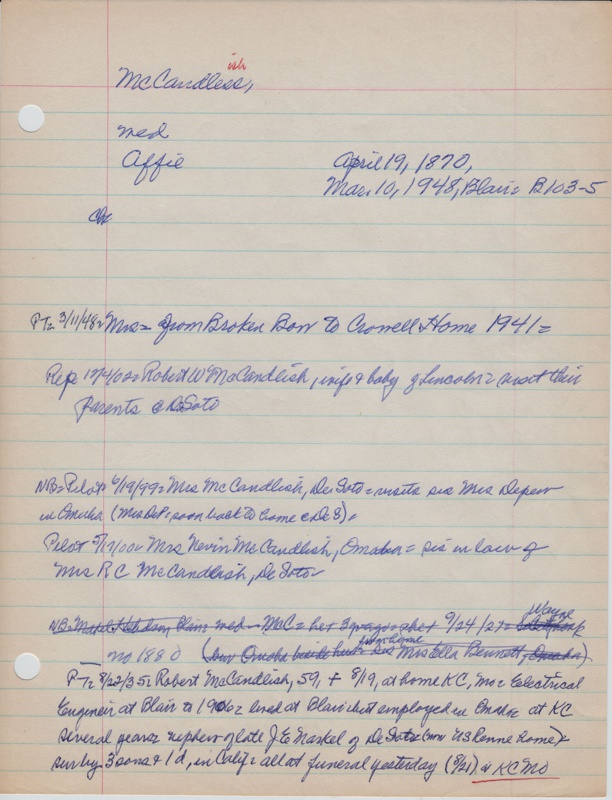 ish
McCandless,
med
Affie April 19, 1870,
Mar. 10, 1948, Blair = B103-5
PT= 3/11/48= Mrs= from Broken Bow to Crowell Home 1941=
Rep 1/7/4/02= Robert W McCandlish, wife & baby of Lincoln= visit their
Parents @ DeSoto
NB= Pilot 6/19/99= Mrs McCandlish, De Soto= visits sis Mrs Depew
in Omaha (Mrs Dep= soon back to home @ De S)=
Pilot 5/17/00= Mrs Nevin McCandlish, Omaha= sis in law of
Mrs R C McCandlish, De Soto=
Wayne
NB= Blair med= McC= her 9/24/27=
from home
no 1880 (born Omaha sis Mrs Ella Bennett, Omaha)
PT= 8/22/35= Robert McCandlish, 59, + 8/19, at home KC, Mo= Electrical
Engineer at Blair to 1906= lived at Blair but employed in Omaha= at KC
several years= nephew of late J E Markel of De Soto
surv by 3 sons & 1 d, in Calif= all at funeral yesterday (8/21) @ KC Mo